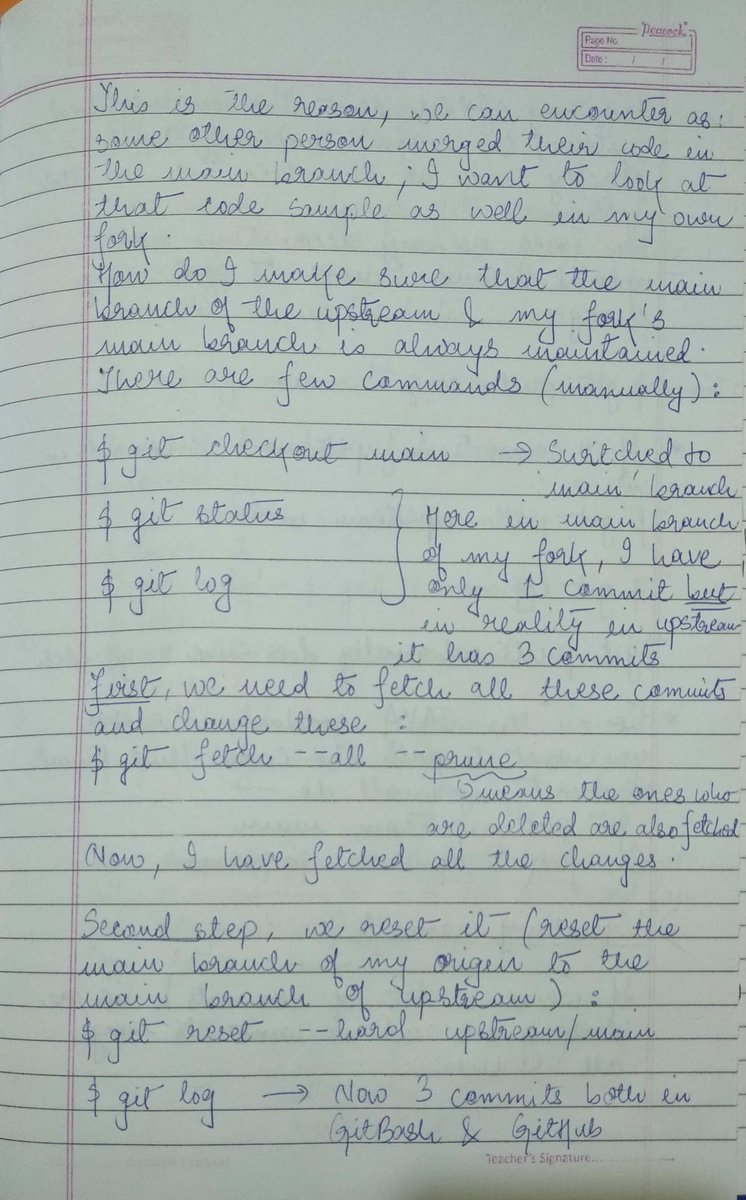 Peacock
Page No.
Date : / /
This is the reason, we can encounter as:
some other person merged their code in
the main branch; I want to look at
that code sample as well in my own
fork.
How do I make sure that the main
branch of the upstream & my fork's
main branch is always maintained.
There are few commands (manually) :
$ git checkout main → Switched to
'main' branch
$ git status
Here in main branch
of my fork, I have
$ git log
only 1 commit but
in reality in upstream
it has 3 commits
First, we need to fetch all these commits
and change these :
$ git fetch --all --prune
means the ones who
are deleted are also fetched
Now, I have fetched all the changes.
Second step, we reset it (reset the
main branch of my origin to the
main branch of upstream) :
$ git reset --hard upstream/main
$ git log → Now 3 commits both in
GitBash & GitHub
Teacher's Signature